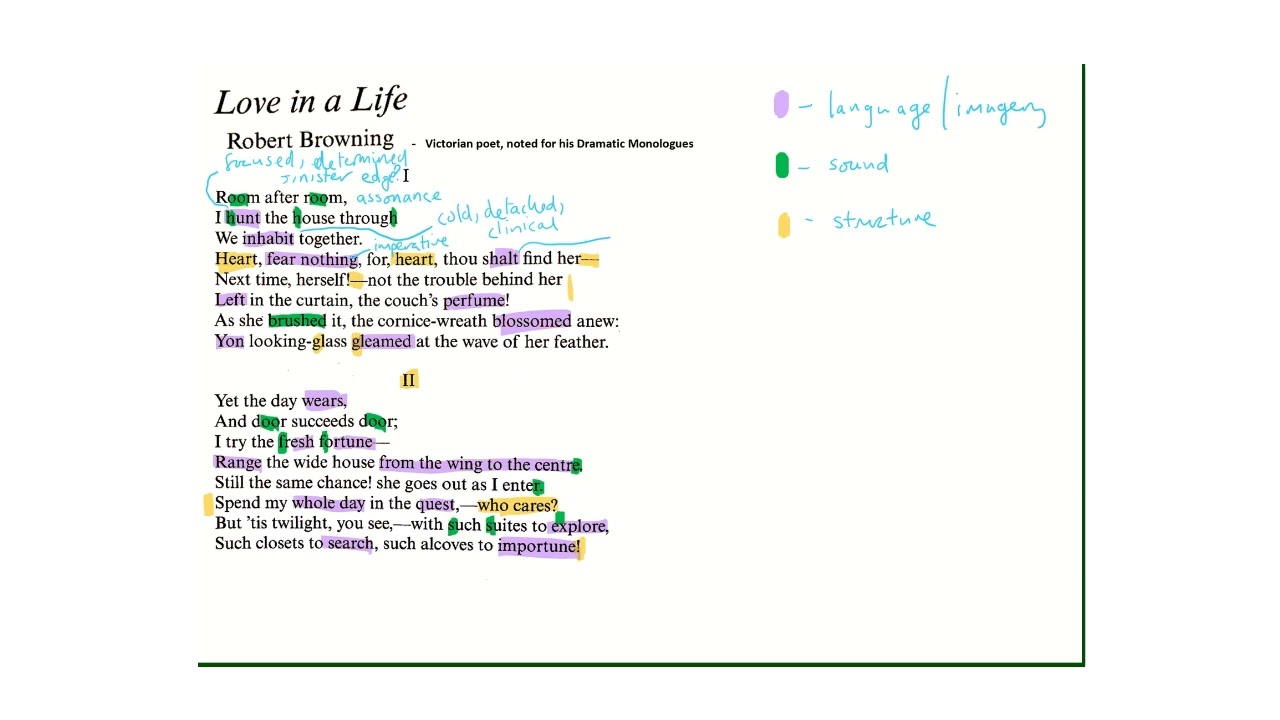 Love in a Life
Robert Browning - Victorian poet, noted for his Dramatic Monologues
focused, determined
sinister edge?
I
Room after room, assonance
I hunt the house through
cold, detached,
clinical
We inhabit together.
imperative
Heart, fear nothing, for, heart, thou shalt find her—
Next time, herself!—not the trouble behind her
Left in the curtain, the couch's perfume!
As she brushed it, the cornice-wreath blossomed anew:
Yon looking-glass gleamed at the wave of her feather.
II
Yet the day wears,
And door succeeds door;
I try the fresh fortune—
Range the wide house from the wing to the centre.
Still the same chance! she goes out as I enter.
Spend my whole day in the quest,—who cares?
But 'tis twilight, you see,—with such suites to explore,
Such closets to search, such alcoves to importune!
- language/imagery
- sound
- structure